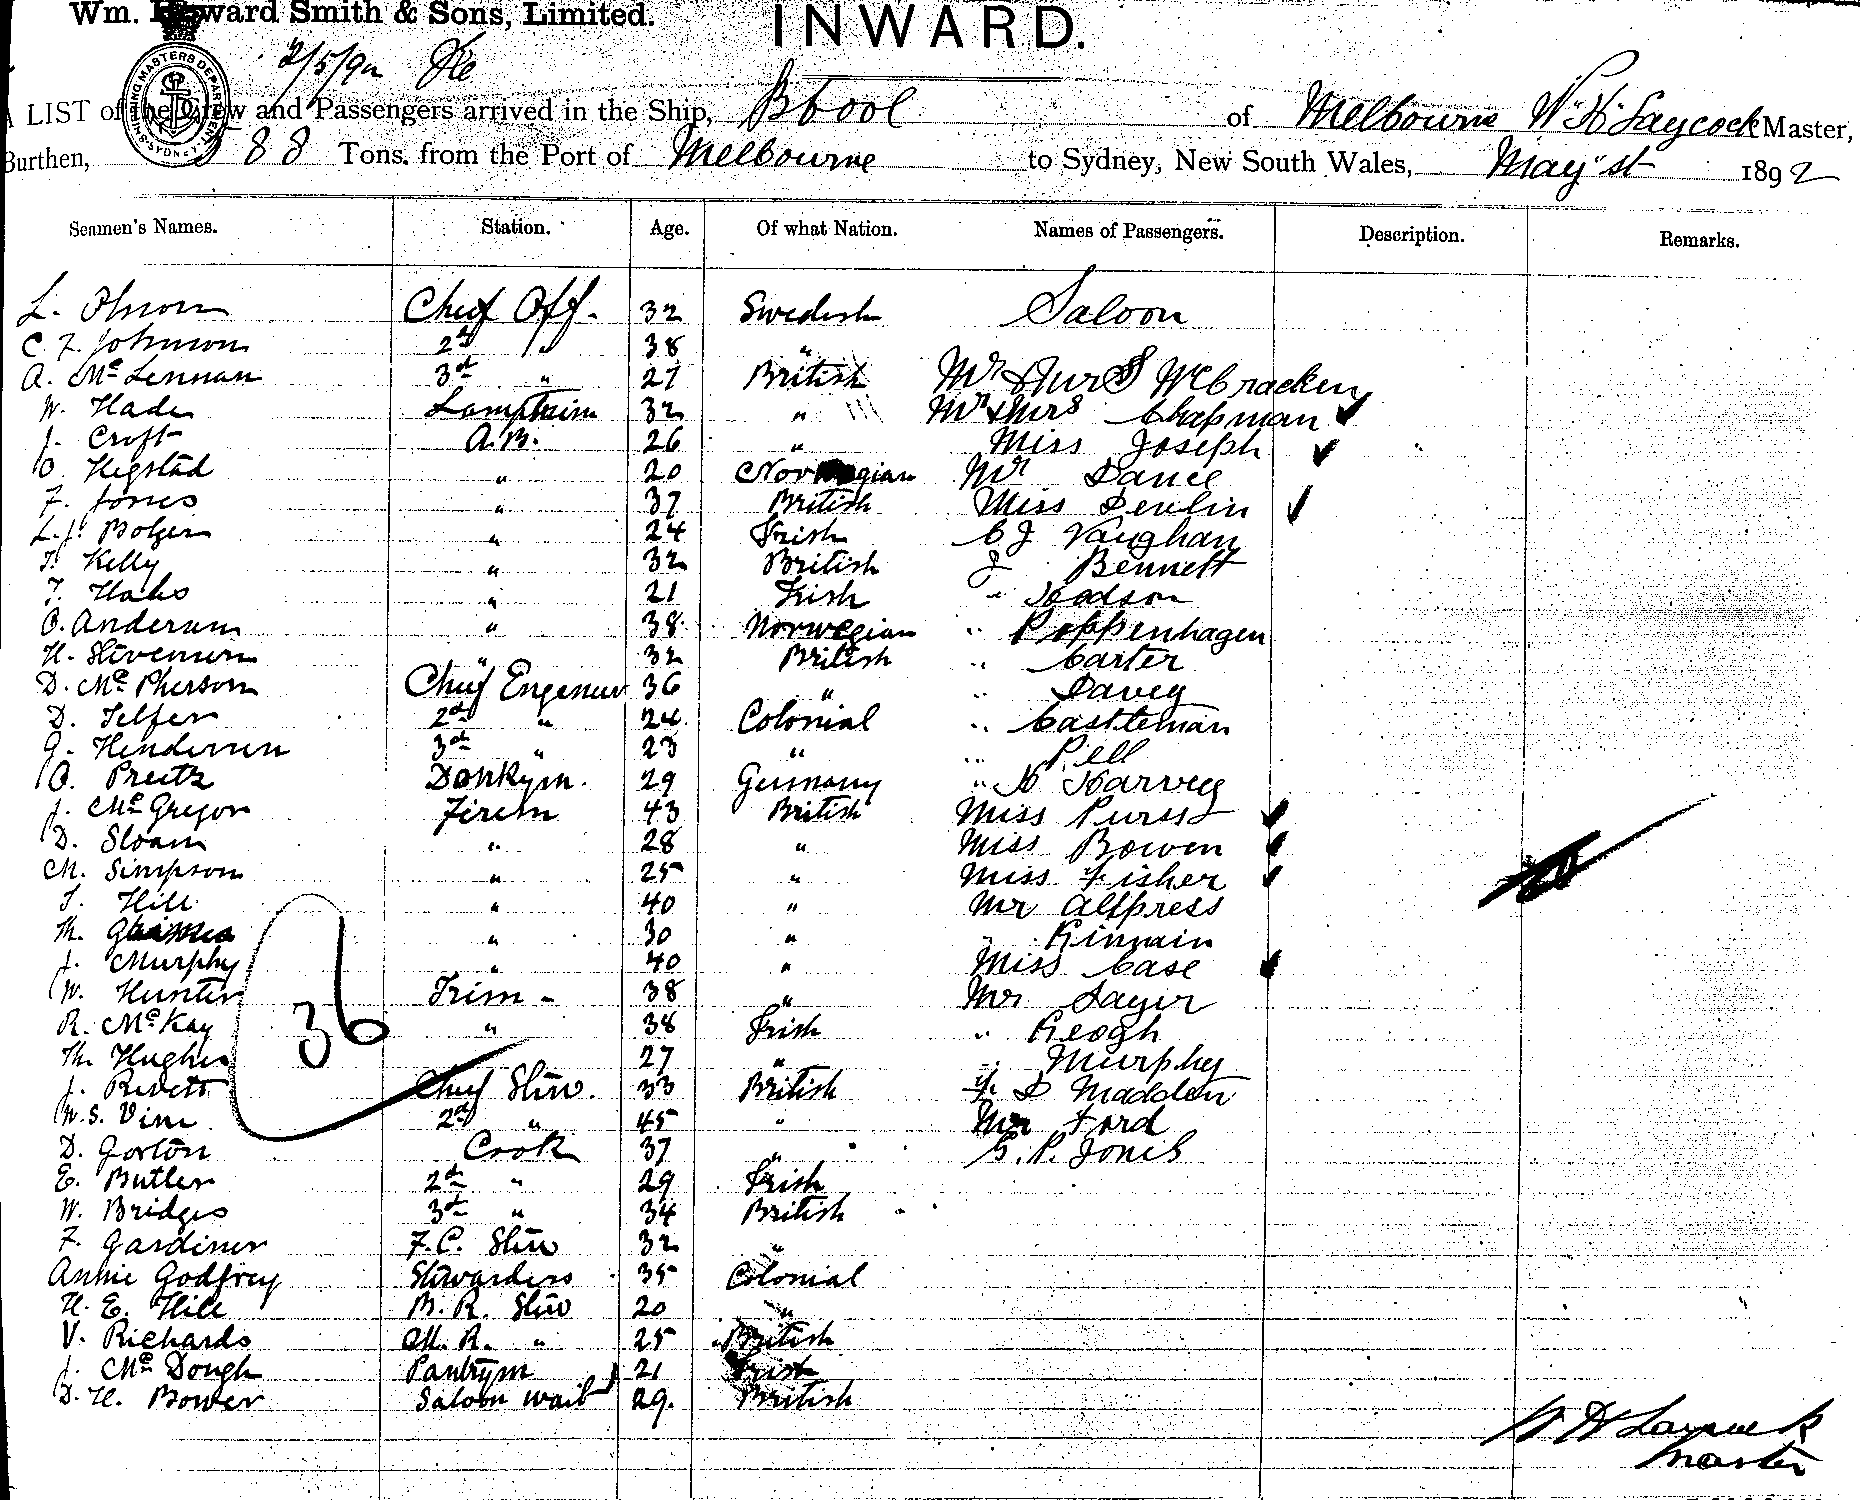 Wm. Howard Smith & Sons, Limited.
INWARD.
2/5/92
SHIPPING MASTERS DEPARTMENT SYDNEY
A LIST of the Crew and Passengers arrived in the Ship, Bbool of Melbourne W. H. Laycock Master,
Burthen, 588 Tons. from the Port of Melbourne to Sydney, New South Wales, May 1st 1892
Seamen's Names. Station. Age. Of what Nation. Names of Passengers. Description. Remarks.
L. Olsson Chief Off. 32 Swedish Saloon
C. F. Johnson 2nd " 38 "
A. McLennan 3rd " 27 British Mr & Mrs S McCracken
W. Hade Lamptrim 32 " Mr & Mrs Chapman
J. Croft A.B. 26 " Miss Joseph
O. Hegstad " 20 Norwegian Mr Dance
F. Jones " 37 British Miss Devlin
L. J. Bolger " 24 Irish C J Vaughan
T. Kelly " 32 British J Bennett
T. " 21 Irish " Hodson
O. Anderson " 38 Norwegian " Poppenhagen
H. Stevenson " 32 British " Carter
D. McPherson Chief Engeneer 36 " " Davey
D. Telfer 2nd " 24 Colonial " Castleman
G. Henderson 3rd " 23 " " Pell
O. Preitz Donkym. 29 Germany " H Harvey
J. McGregor Firem 43 British Miss Purss
D. Sloan " 28 " Miss Bowen
M. Simpson " 25 " Miss Fisher
T. Hill " 40 " Mr Allpress
Th. " 30 " " Kinnain
J. Murphy " 40 " Miss Case
W. Hunter Trim - 38 " Mr Sayer
R. McKay " 38 Irish " Keogh
Th. Hughes 27 " " Murphy
J. Rivett Chief Stew. 33 British F. D Madden
W. S. Vine 2nd " 45 " Mr Ford
D. Gorton Cook 37 " G. P. Jones
E. Butler 2nd " 29 Irish
W. Bridges 3rd " 34 British
F. Gardiner F.C. Stew 32 "
Annie Godfrey Stewardess 35 Colonial
H. E. Hill B. R. Stew 20 "
V. Richards M. R. " 25 British
J. McDough Pantrym 21 Irish
D. H. Bower Saloon wait 29. British
36
W H Laycock
Master